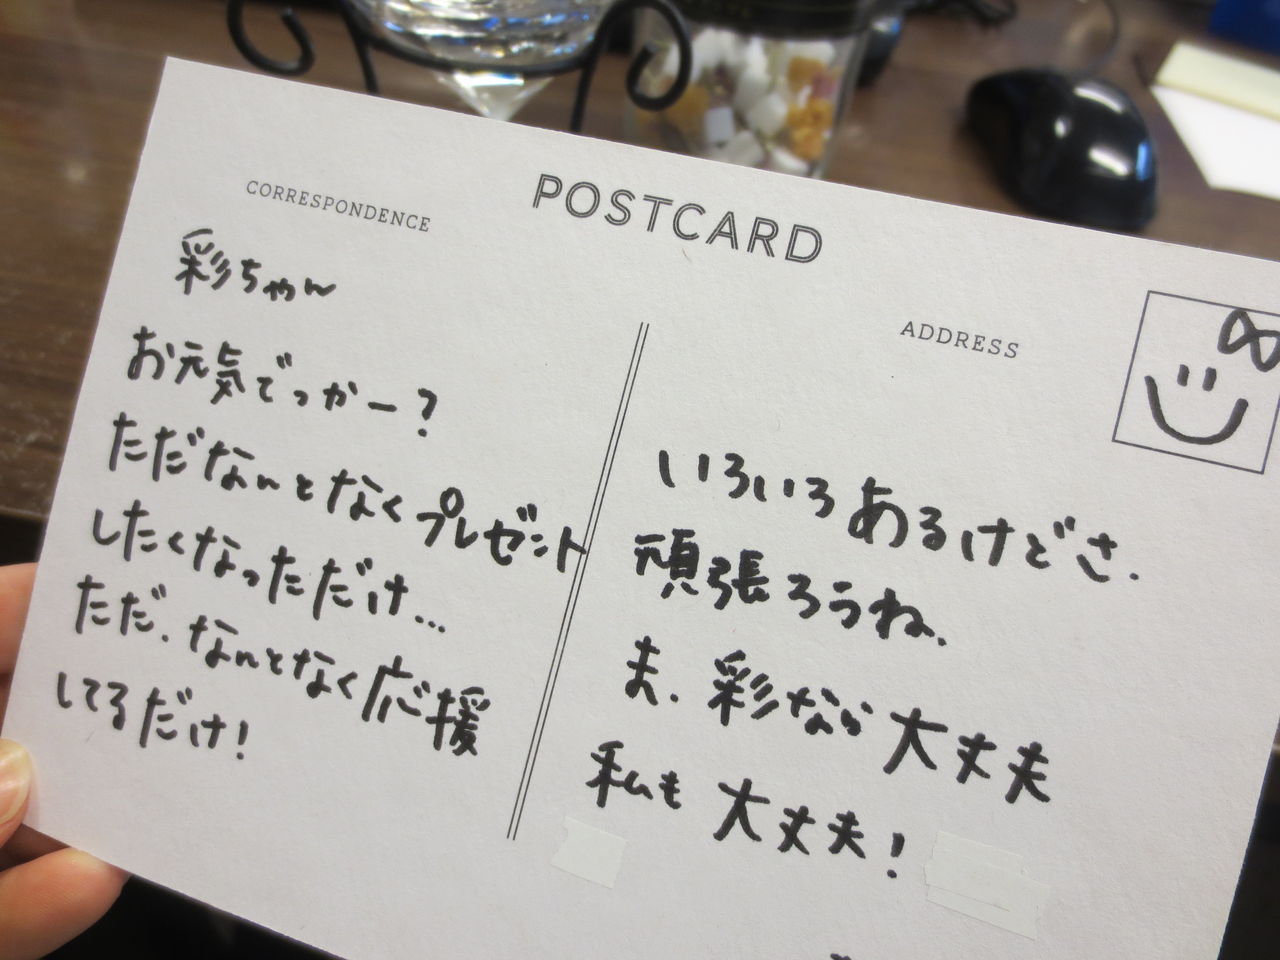 POSTCARD
CORRESPONDENCE
彩ちゃん
お元気でっかー?
ただなんとなくプレゼント
したくなっただけ...
ただ、なんとなく応援
してるだけ!
ADDRESS
いろいろあるけどさ、
頑張ろうね、
ま、彩なら大丈夫
私も大丈夫!